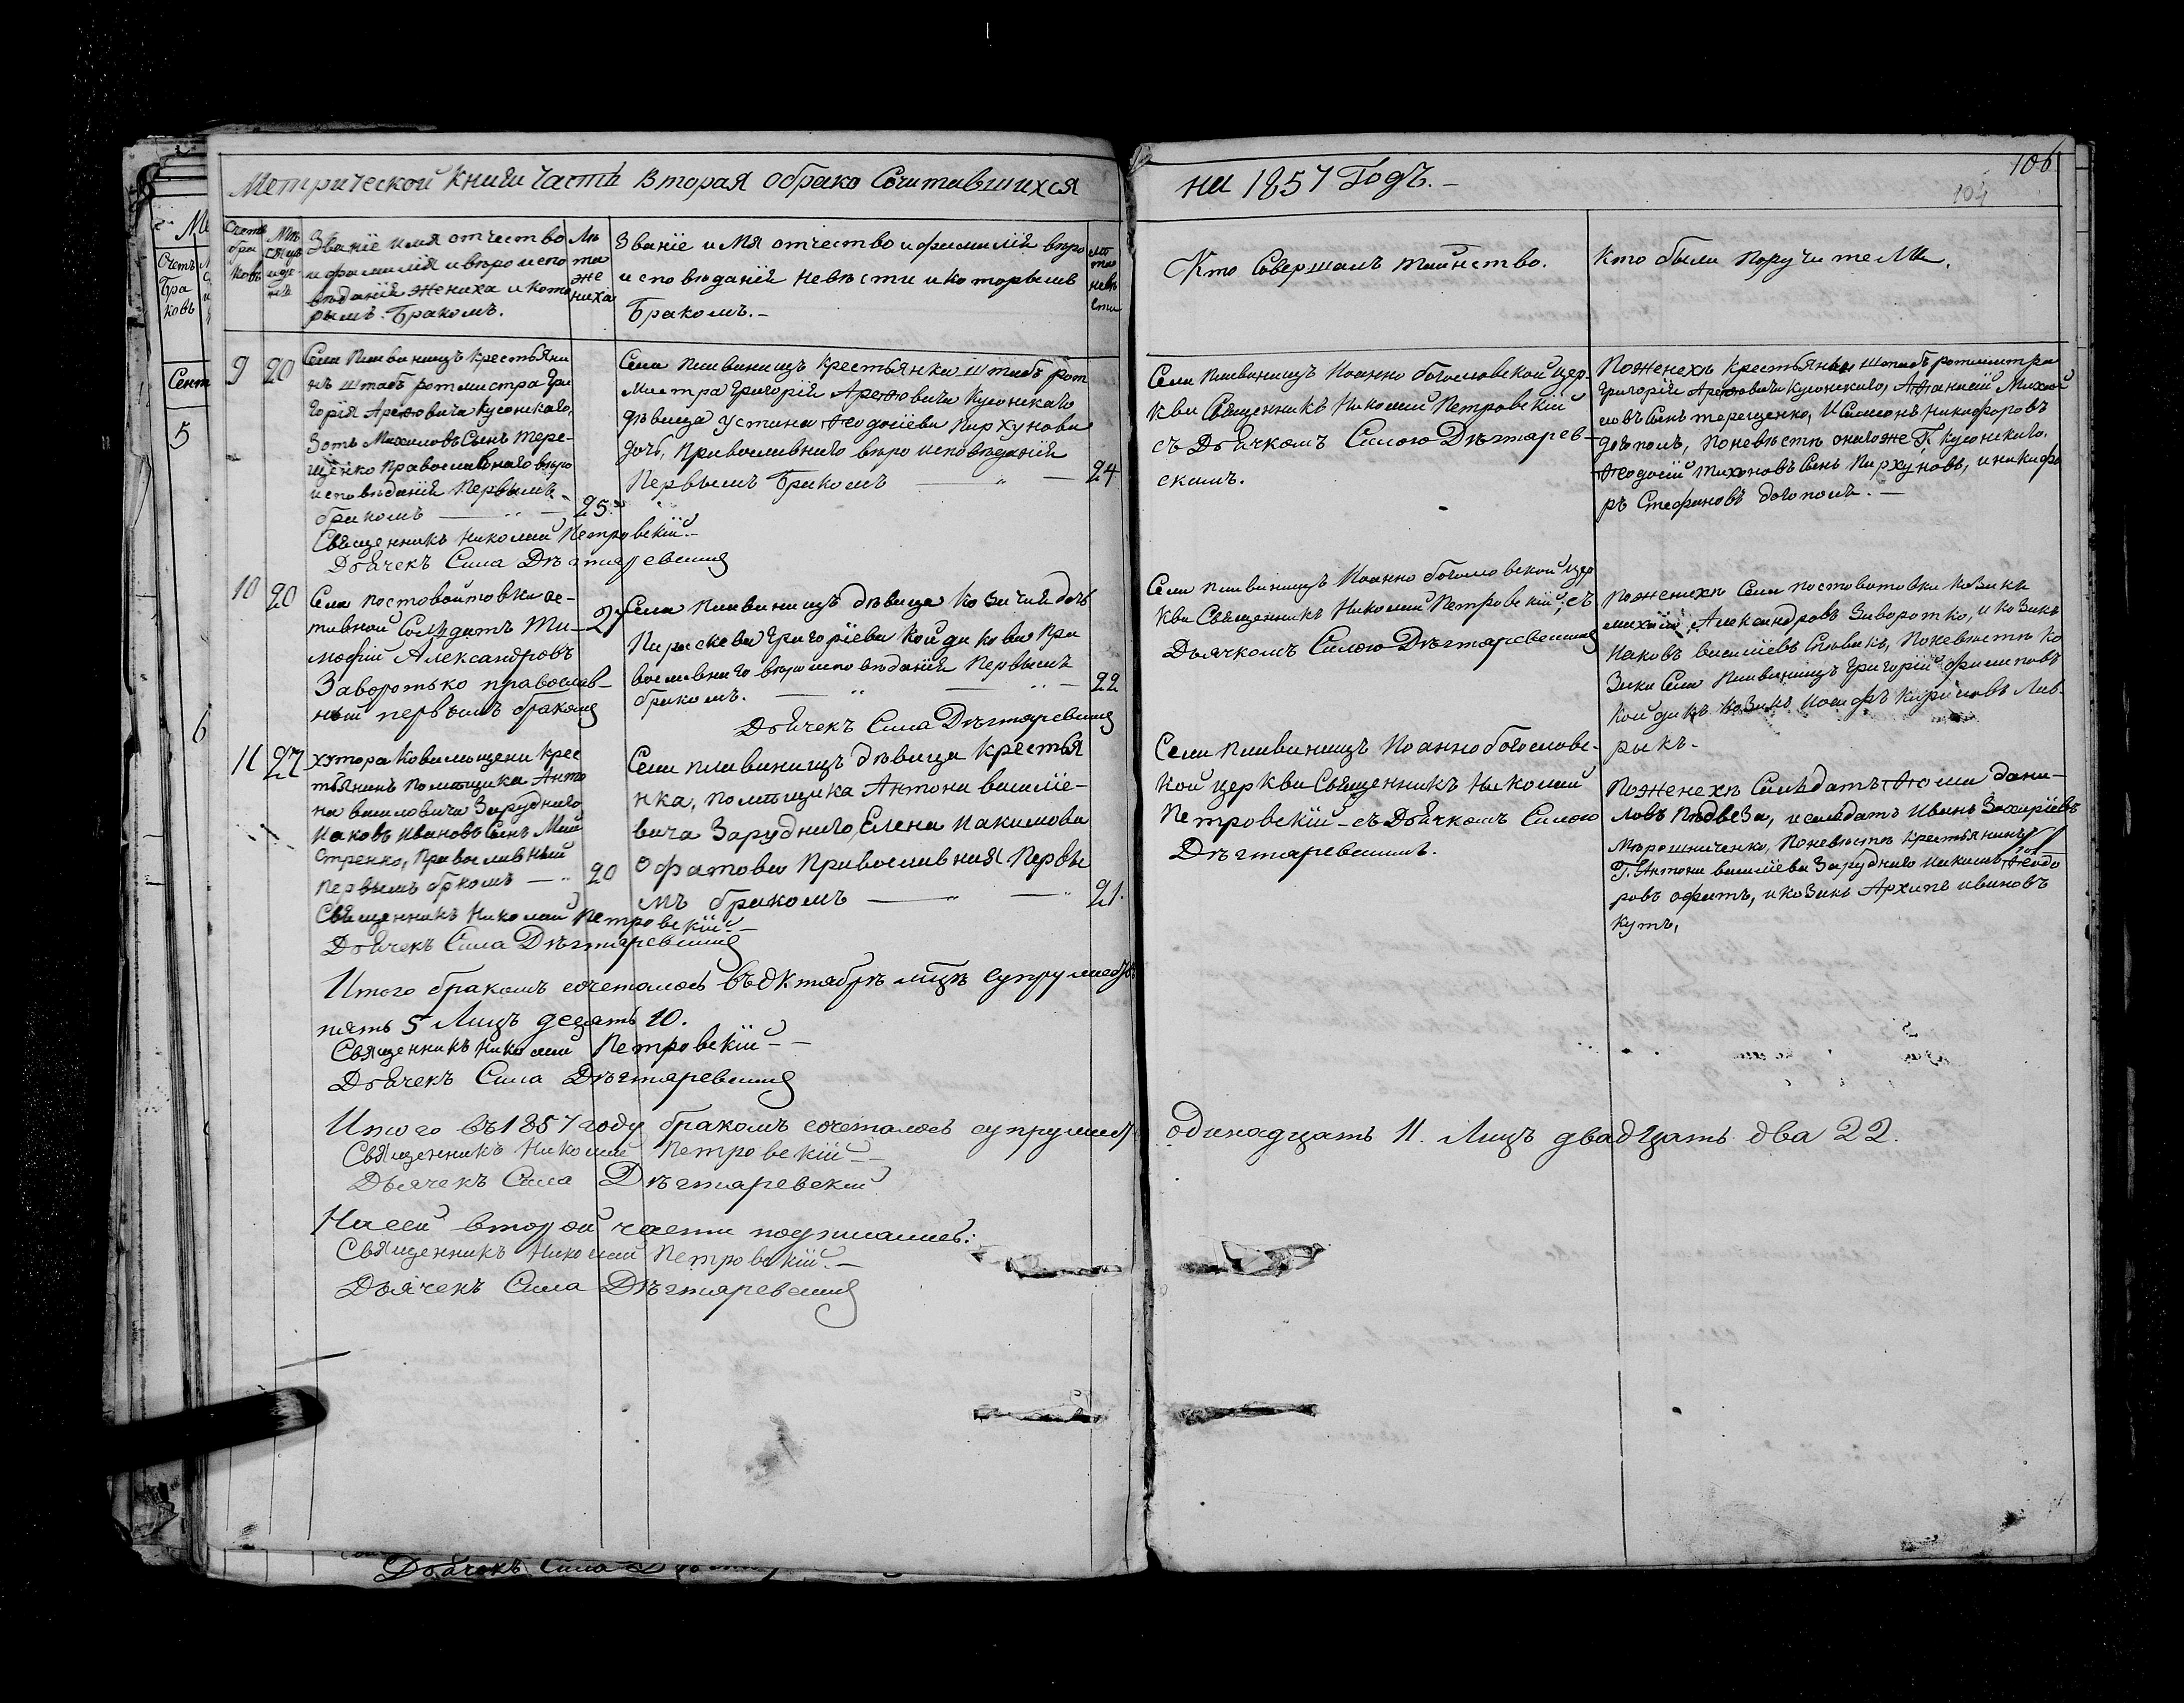 Метрической книги часть вторая о брако сочитавшихся
на 1857 Годъ. –
106
104
Счетъ бра ковъ
Званіе имя отчество
и фамилія и вѣроиспо
вѣданія жениха и кото
рымъ бракомъ.
Лѣ та же ниха
Званіе имя отчество и фамилія вѣро
исповѣданія невѣсти и которымъ
бракомъ. –
лѣ та невѣ сти
Кто Совершалъ таинство.
Кто были поручители.
9
20
Села Пливинищъ крестьяни
нъ штабъ ротмистра Гри
горія Арефовича Кусонскаго,
Зотъ Михаиловъ Сынъ Тере-
щенко Православнаго вѣро
исповѣданія Первымъ
бракомъ
25
Священникъ Николай Петровскій –
Дьячекъ Сила Дѣгтяревский
Села Пливинищъ крестьянка штабъ рот
мистра Григорій Арефовича Кусонскаго
дѣвица Устина Феодосіева Пархунова
дочь, Православнаго вѣроисповѣданія
Первымъ бракомъ
24
Села Пливинищъ Иоанно богословской цер-
кви Священникъ Николай Петровскій
съ Дьячкомъ Силою Дѣгтярев-
скимъ.
По женехѣ крестьяны штабъ ротмистра
Григорій Арефовича Кусонскаго, Афанасій Михаи
ловъ Сынъ терещенко, и Симеонъ Никифоровъ
Феодосій Тихоновъ Сынъ Пархуновъ, и никифо
ръ Стефановъ
10
20
Села Постовойтовки ос-
тавной Солдатъ Ти-
мофій Александровъ
Заворотько православ-
ный первымъ бракомъ
27
Села Пливинищъ дѣвица козачія дочь
Параскева Григоріева Койдакова Пра
вославнаго вѣроисповѣданія Первымъ
бракомъ.
22
Дьячекъ Сила Дѣгтяревский
Села Пливинищъ Иоанно богословской цер
кви Священникъ Николай Петровскій, съ
Дьячкомъ Силою Дѣгтяревскимъ
По женихѣ Села постовотовки козаки
Александровъ Заворотко, и козакъ
Иаковъ Василіевъ Сливикъ, По невѣстѣ ко
заки Села Пливинищъ Григорій филиповъ
Койдакъ козакъ Иосифъ Кириловъ Лав-
рыкъ.
11
27
хутора Ковалищени крес
тьянинъ помѣщика Анто
на василовича Заруднаго
Иаковъ Ивановъ Сынъ Май
стренко, Православный
Первымъ бркомъ
20
Священникъ Николай Петровскій –
Дьячекъ Сила Дѣгтяревский
Села пливинищъ дѣвица Крестья
нка, помѣщика Антона василіе-
вича Заруднаго, Елена Иакимова
Офатова Православная Первы
мъ бракомъ
21.
Села Пливинищъ Иоаннобогословс-
кой церкви Священникъ Николай
Петровскій – съ Дьячкомъ Силою
Дѣгтяревскимъ.
По женехѣ Салдатъ Фома Дани-
ловъ Пѣдвеза, и салдатъ Иванъ Захаріевъ
Мѣрошниченко, По невѣстѣ крестьянинъ
Г. Антона василіева Заруднаго Иакимъ Феодо
ровъ офатъ, и козакъ Архипъ ивановъ
кутъ,
Итого бракомъ сочеталось въ октябрѣ мцѣ супружествъ
пять 5 Лицъ десять 10.
Священникъ Николай Петровскій –
Дьячекъ Сила Дѣгтяревский
Итого въ 1857 году бракомъ сочеталось супружествъ одинадцать 11. Лицъ двадцать два 22.
Священникъ Николай Петровскій –
Дьячекъ Сила Дѣгтяревский
На сей второй части подписались:
Священникъ Николай Петровскій. –
Дьячекъ Сила Дѣгтяревский
Счетъ Бра ковъ
Сент
5
6
Дьячекъ Сила